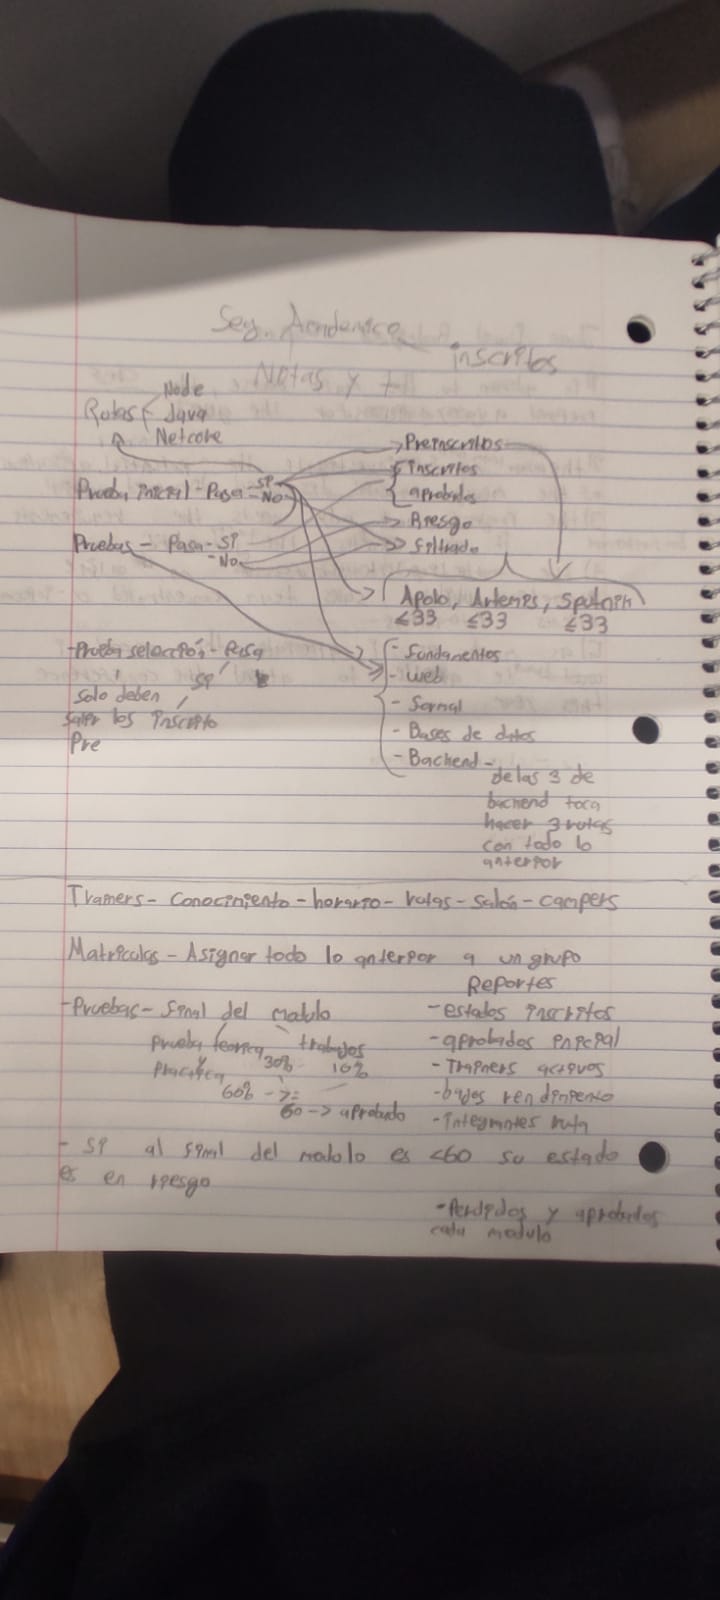 Seg. Academico
inscritos
Notas y
Rutas { Node
Java
Netcore
Prueba inicial - Pasa - SI
- No
Pruebas - Pasa - SI
- No
Preinscritos
inscritos
aprobados
Riesgo
filtrado
Apolo, Artemis, Sputnik
≤33 ≤33 ≤33
- Prueba selección - Pasa
SI
solo deben
salir los inscrito
Pre
- fundamentos
- web
- formal
- Bases de datos
- Backend -
de las 3 de
backend toca
hacer 3 rutas
con todo lo
anterior
Trainers - conocimiento - horario - rutas - salón - campers
Matriculas - Asignar todo lo anterior a un grupo
- Pruebas - final del modulo
prueba teorica trabajos
y 30% 10%
practica
60% -> >=
60 -> aprobado
Reportes
- estados inscritos
- aprobados inicial
- Trainers activos
- bajos rendimiento
- integrantes ruta
- SI al final del modulo es <60 su estado
es en riesgo
- Perdidos y aprobados
cada modulo